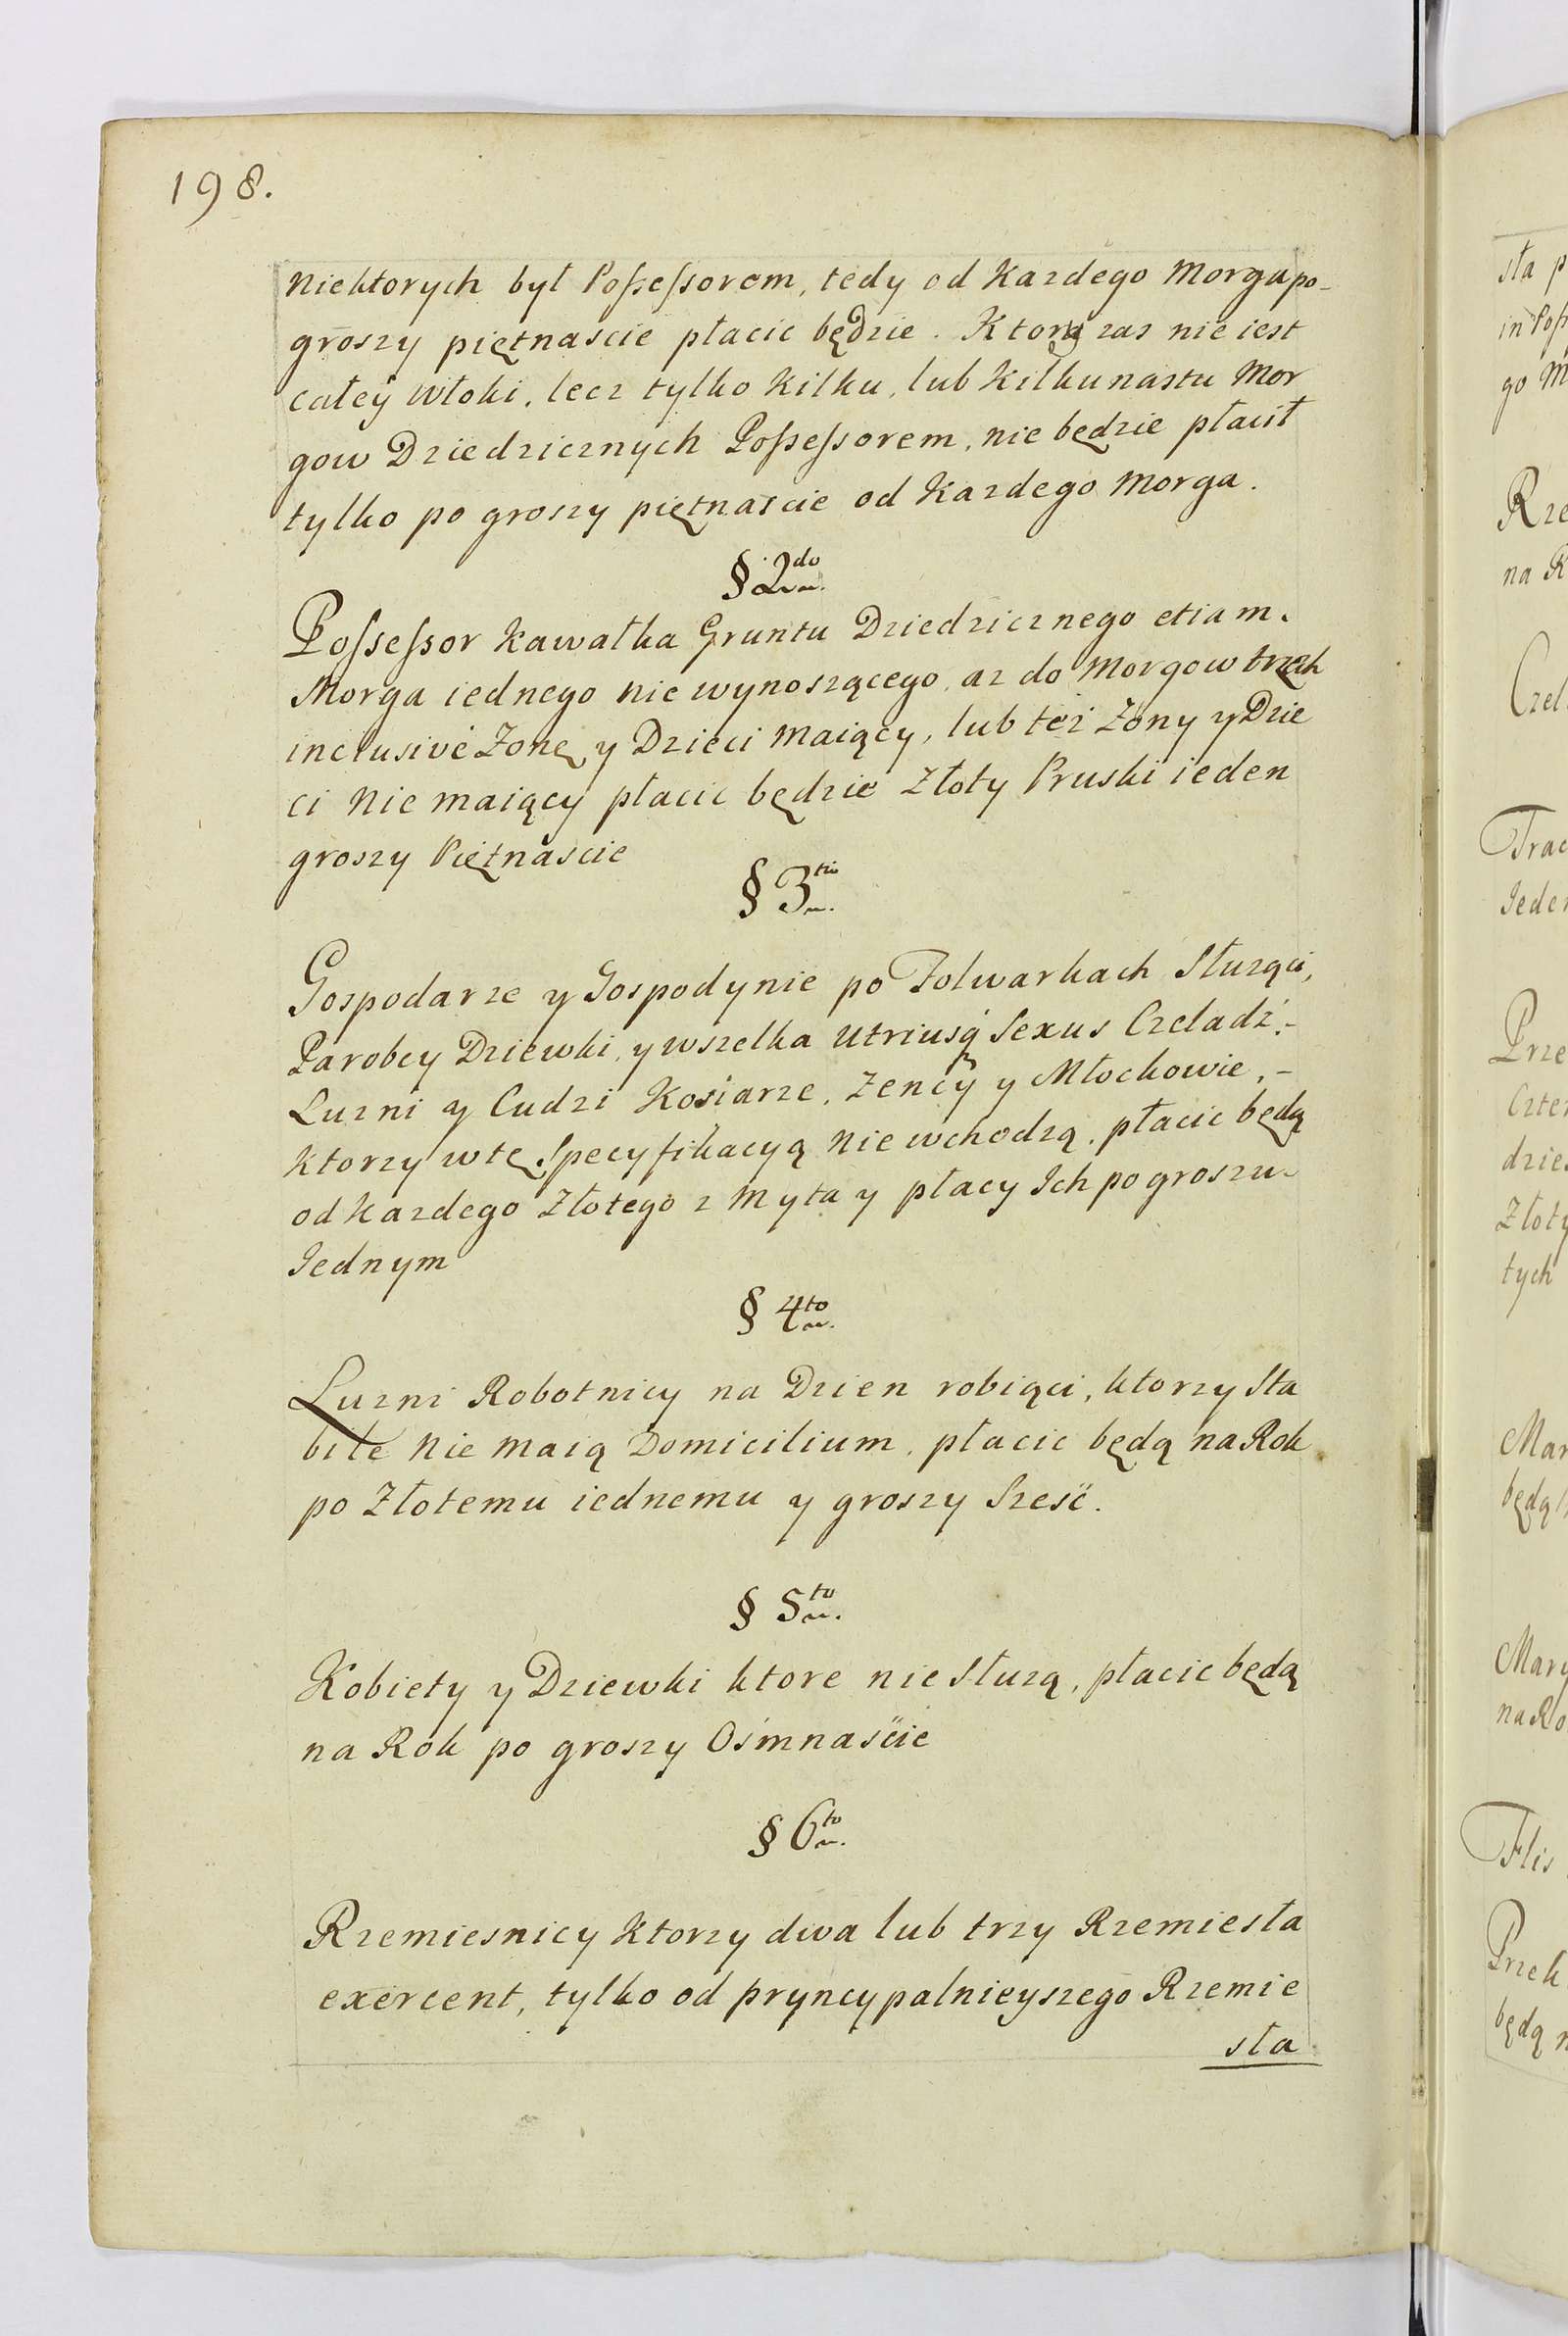 198.
niektorych był Poſseſsorem, tedy od Kazdego Morga po-
groszy piętnascie płacic będzie. Ktory zas nie iest
całey Włoki, lecz tylko Kilku, lub Kilkunastu Mor
gow Dziedzicznych Poſseſsorem, nie będzie płacił
tylko po groszy piętnascie od Kazdego Morga.
§ 2do.
Poſseſsor Kawałka Gruntu Dziedzicznego etiam.
Morga iednego nie wynoszącego, az do Morgow trzech
inclusivè Zonę y Dzieci maiący, lub też Zony y Dzie
ci nie maiący płacic będzie Złoty Pruski ieden
groszy Piętnascie
§ 3tio.
Gospodarze y Gospodynie po Folwarkach Słuzący,
Parobcy Dziewki, y wszelka utriusq Sexus Czeladź,-
Luzni y Cudzi Kosiarze, Zency y Młockowie,-
Ktorzy w tę Specyfikacyą nie wchodzą, płacic będą
od Kazdego Złotego z Myta y płacy Ich po groszu-
Iednym
§ 4to.
Luzni Robotnicy na Dzien robiąci, ktorzy Sta
bile nie maią Domicilium, płacic będą na Rok
po Złotemu iednemu y groszy Sześć.
§ 5to.
Kobiety y Dziewki ktore nie Słuzą, płacic będą
na Rok po groszy Ośmnaście
§ 6to.
Rzemiesnicy Ktorzy dwa lub trzy Rzemiesła
exercent, tylko od pryncypalnieyszego Rzemie
sła
sła p
go M
Rze
na R
Czel
Trac
Ieden
Prze
Czter
dzies
Złoty
tych
Mar
będą
Mary
na Ro
Flis
Przek
będą n